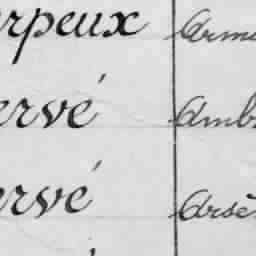 rpeux Arme
ervé Amb
ervé Arsè